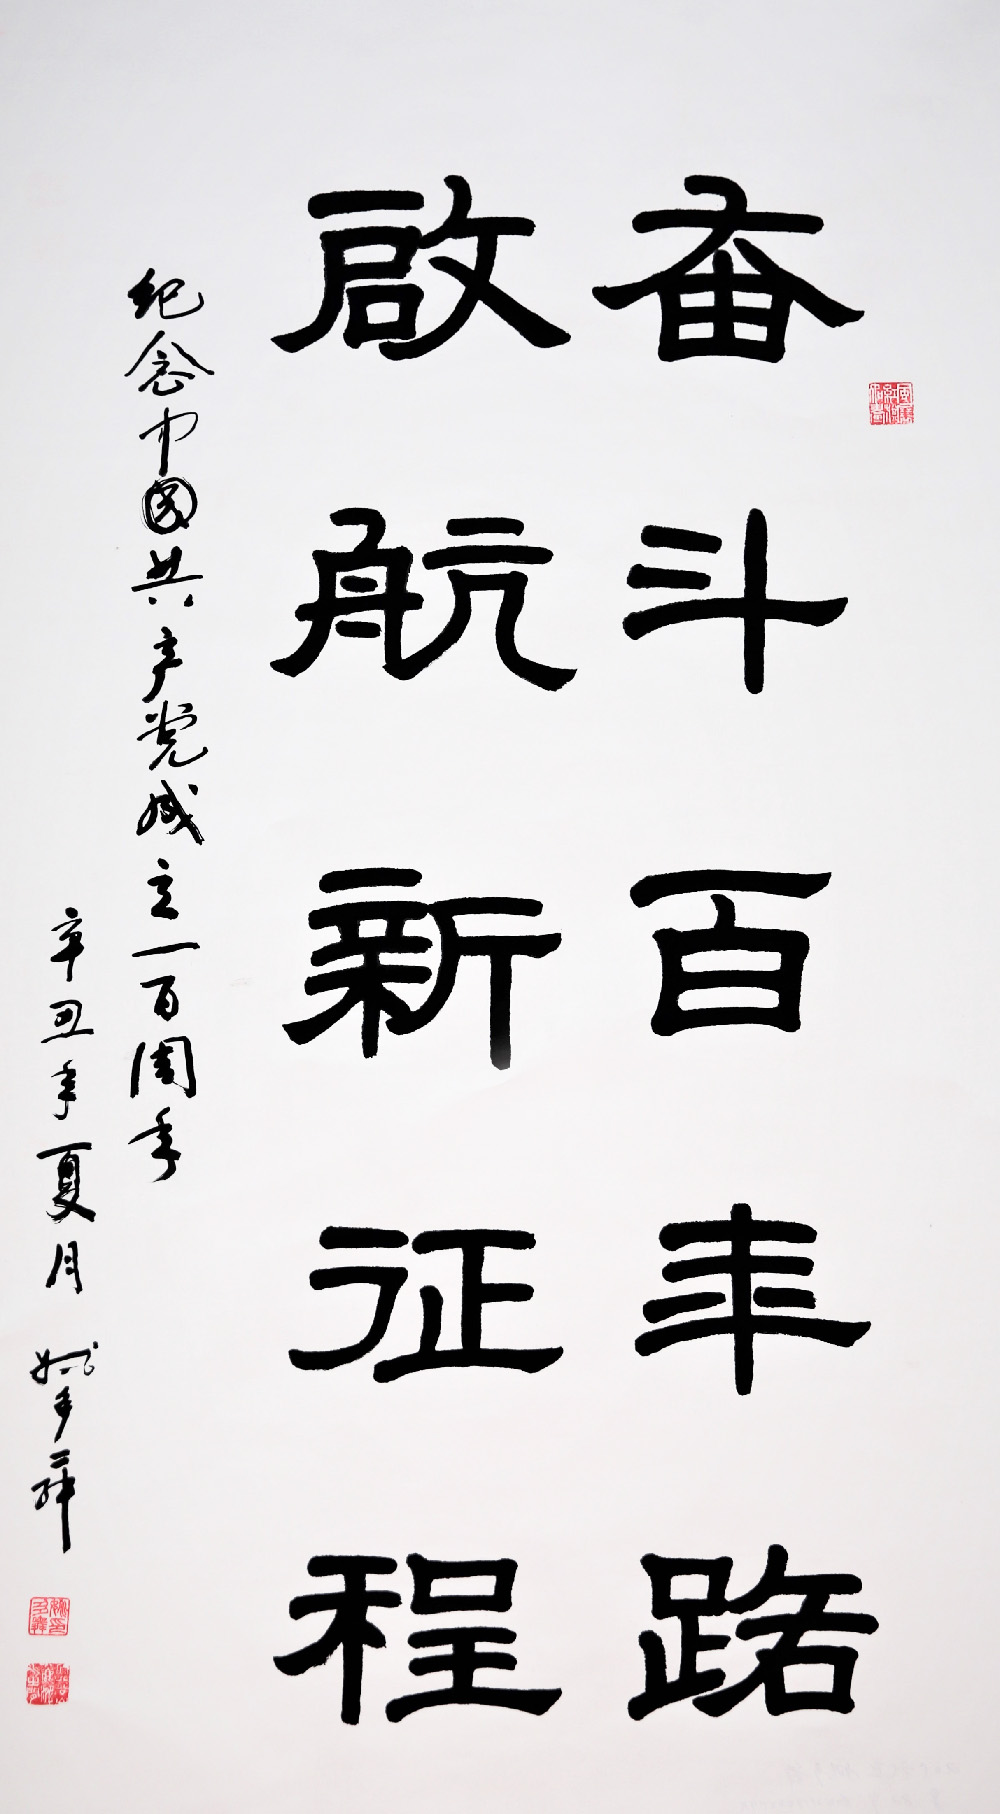 奋斗百年路
啟航新征程
纪念中国共产党成立一百周年
辛丑年夏月 姚多舜